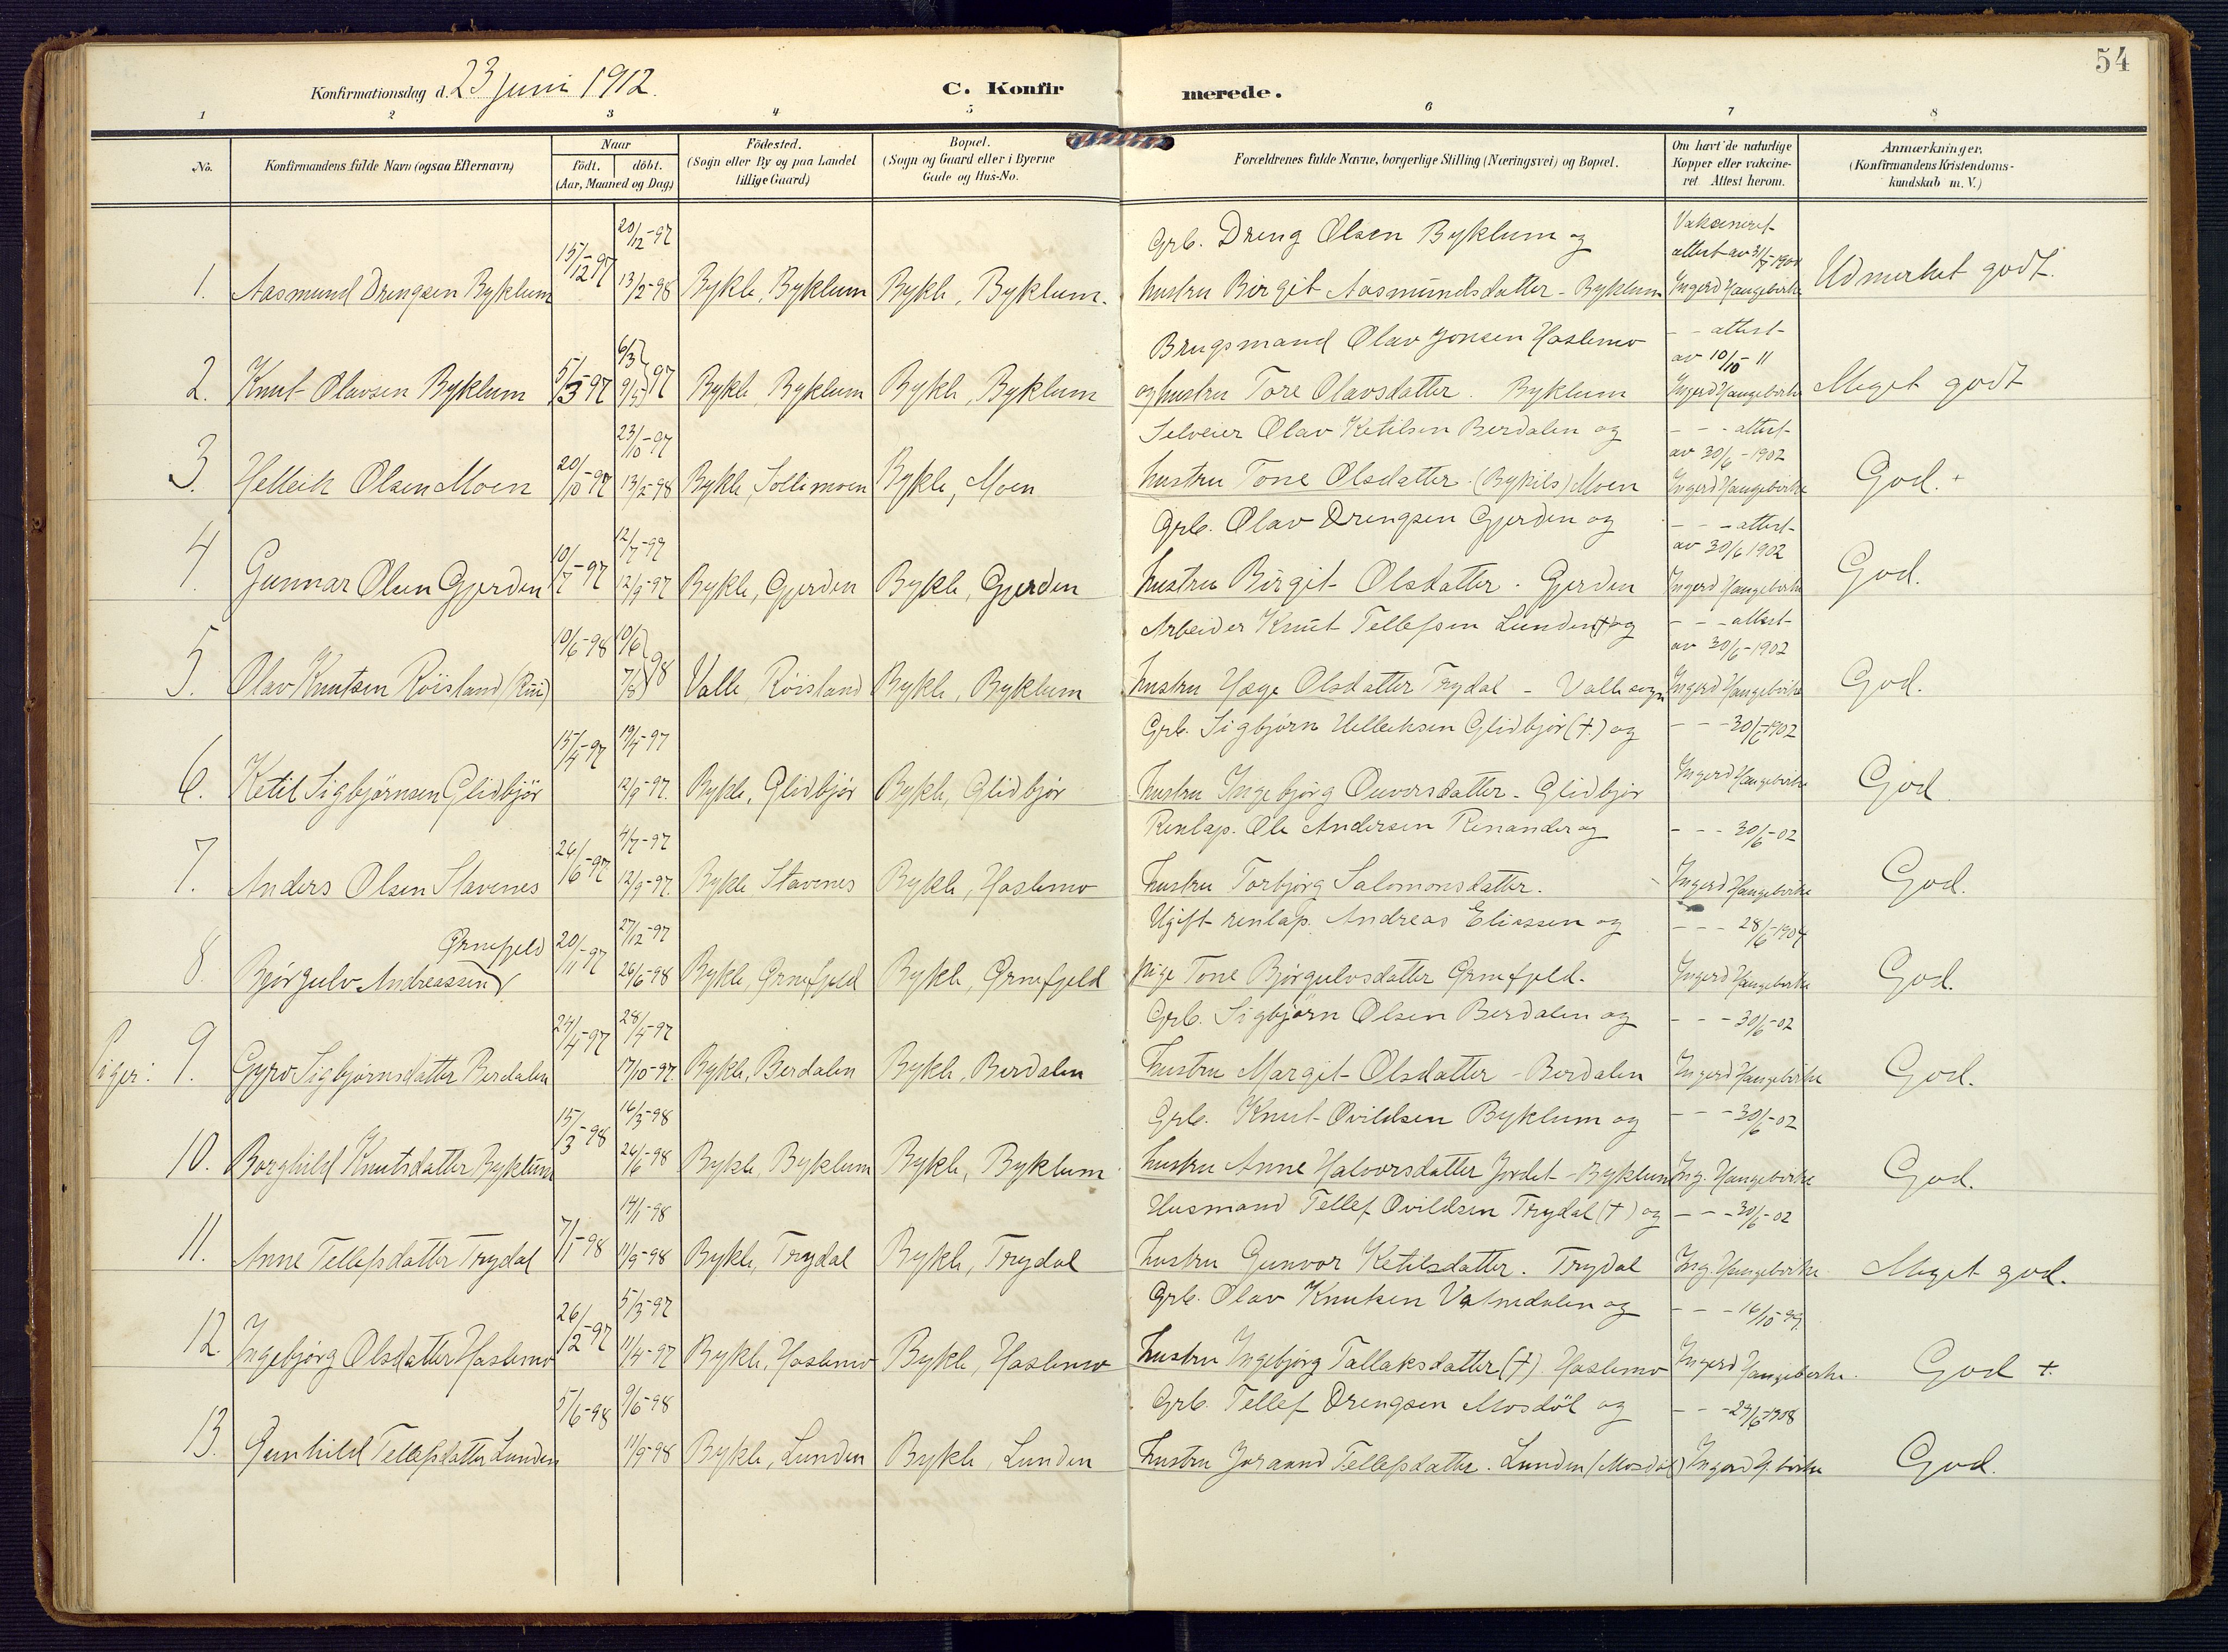 54
Konfirmationsdag d. 23 juni 1912.
C. Konfirmerede.
1 2 3 4 5 6 7 8
No.
Konfirmandens fulde Navn (ogsaa Efternavn)
Naar
født. døbt.
(Aar, Maaned og Dag)
Födested.
(Sogn eller By og paa Landet
tillige Gaard)
Bopæl.
(Sogn og Gaard eller i Byerne
Gade og Hus-No.
Forældrenes fulde Navne, borgerlige Stilling (Næringsvei) og Bopæl.
Om havt de naturlige
Kopper eller vakcine-
ret Attest herom.
Anmærkninger.
(Konfirmandens Kristendoms-
kundskab m. V.)
1. Aasmund Drengsen Byklum 15/12-97 20/12-97 13/2-98 Bykle, Byklum Bykle, Byklum.
Grb. Dreng Olsen Byklum og
hustru Birgit Aasmundsdatter - Byklum
Vakcineret
Ingerd Haugebirke
Udmerket godt.
2. Knut Olavsen Byklum 5/3-97 6/3 9/5 97 Bykle, Byklum Bykle, Byklum
Brugsmand Olav Jonsen Haslemo
og hustru Tore Olavsdatter. Byklum
- - attest
av 10/10-11
Ingerd Haugebirke
Meget godt
3. Helleik Olsen Moen 20/10-97 23/10-97 13/2-98 Bykle, Sollimoen Bykle, Moen
Selveier Olav Ketilsen Berdalen og
hustru Tone Olsdatter (Bykils) Moen
- - - attest
av 30/6-1902
Ingerd Haugebirke
God. +
4. Gunnar Olsen Gjerden 10/7-97 12/7-97 12/9-97 Bykle, Gjerden Bykle, Gjerden
Grb. Olav Drengsen Gjerden og
hustru Birgit Olsdatter. Gjerden
- - - attest
av 30/6 1902
Ingerd Haugebirke
God.
5. Olav Knutsen Röisland (Rui) 10/6-98 10/6 7/8 98 Valle, Röisland Bykle, Byklum
Arbeider Knut Tellefsen Lunden + og
hustru Hæge Olsdatter Trydal - Valle sogn
- - - attest
av 30/6-1902
Ingerd Haugebirke
God.
6. Ketil Sigbjörnsen Glidbjör 15/4-97 19/4-97 12/9-97. Bykle, Glidbjör Bykle, Glidbjör
Grb. Sigbjörn Helleiksen Glidbjör (+) og
hustru Ingebjörg Ouversdatter - Glidbjör
- - - 30/6-1902
Ingerd Haugebirke
God
7. Anders Olsen Stavenes 26/6-97 4/7-97 12/9-97. Bykle Stavenes Bykle, Haslemo
Renlap. Ole Andersen Renander og
hustru Torbjörg Salomonsdatter.
- - - 30/6-02
Ingerd Haugebirke
God.
8. Bjørgulv Andreassen Ørnefjeld 20/11-97 27/12-97 26/6-98 Bykle, Ørnefjeld Bykle, Ørnefjeld
Ugift renlap. Andreas Eliassen og
pige Tone Bjørgulvsdatter Ørnefjeld.
- - - 28/6-1904
Ingerd Haugebirke
God.
Piger: 9. Gyro Sigbjørnsdatter Berdalen 24/4-97 28/4-97 17/10-97. Bykle, Berdalen Bykle, Berdalen
Grb. Sigbjørn Olsen Berdalen og
hustru Margit Olsdatter - Berdalen
- - - 30/6-02
Ingerd Haugebirke
God.
10. Borghild Knutsdatter Byklum 15/3-98 16/3-98 26/6-98 Bykle, Byklum Bykle, Byklum
Grb. Knut Ovildsen Byklum og
hustru Anne Halvorsdatter Jordet - Byklum
- - - 30/6-02
Ing. Haugebirke
God.
11. Anne Tellefsdatter Trydal 7/1-98 14/1-98 11/9-98 Bykle, Trydal Bykle, Trydal
Husmand Tellef Ovildsen Trydal (+) og
hustru Gunvor Ketilsdatter. Trydal
- - - 30/6-02
Ing. Haugebirke
Meget god.
12. Ingebjörg Olsdatter Haslemo 26/2-97 5/3-97 11/4-97 Bykle, Haslemo Bykle, Haslemo
Grb. Olav Knutsen Vatnedalen og
hustru Ingebjörg Tallaksdatter (+) Haslemo
- - - 16/10-99.
Ingerd Haugebirke.
God +.
13. Gunhild Tellefsdatter Lunden 5/6-98 9/6-98 11/9-98 Bykle, Lunden Bykle, Lunden
Grb. Tellef Drengsen Mosdöl og
hustru Joraand Tellefsdatter. Lunden (Mosdöl)
Ingerd H. birke
God.